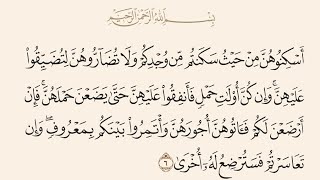 بِسْمِ ٱللَّهِ ٱلرَّحْمَٰنِ ٱلرَّحِيمِ
أَسْكِنُوهُنَّ مِنْ حَيْثُ سَكَنتُم مِّن وُجْدِكُمْ وَلَا تُضَآرُّوهُنَّ لِتُضَيِّقُوا۟
عَلَيْهِنَّ ۚ وَإِن كُنَّ أُو۟لَٰتِ حَمْلٍ فَأَنفِقُوا۟ عَلَيْهِنَّ حَتَّىٰ يَضَعْنَ حَمْلَهُنَّ ۚ فَإِنْ
أَرْضَعْنَ لَكُمْ فَـَٔاتُوهُنَّ أُجُورَهُنَّ ۖ وَأْتَمِرُوا۟ بَيْنَكُم بِمَعْرُوفٍ ۖ وَإِن
تَعَاسَرْتُمْ فَسَتُرْضِعُ لَهُۥٓ أُخْرَىٰ ٦